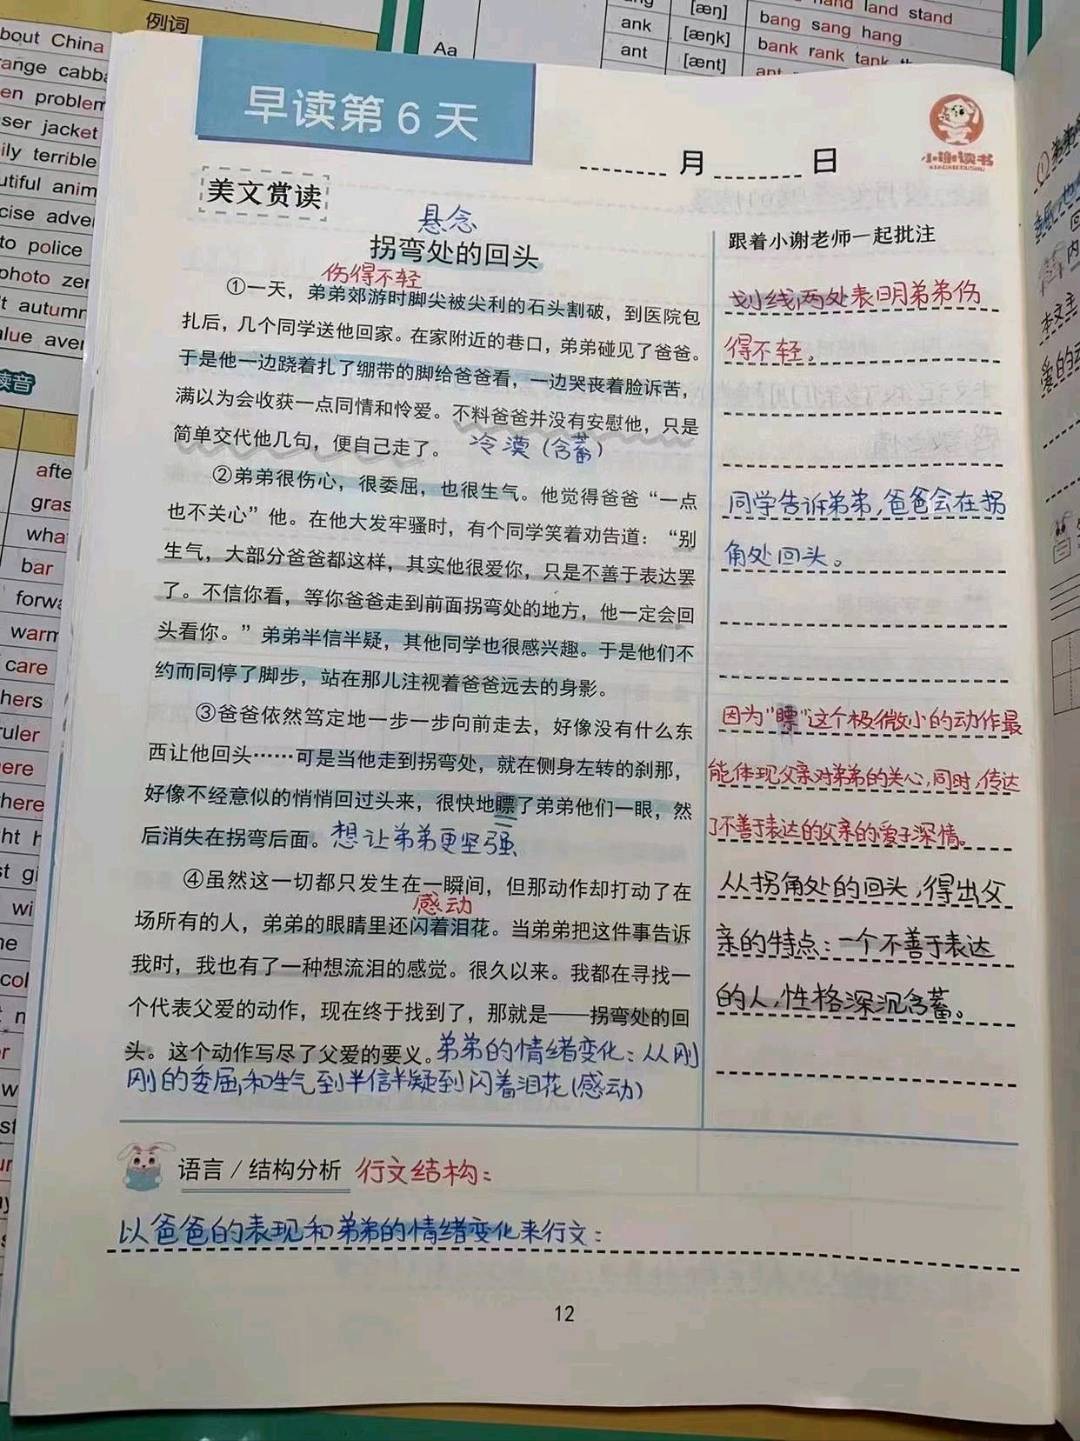 例词
about China
cabba
en problem
ser jacket
ily terrible
utiful anim
cise adve
to police
photo zer
t autumn
alue aver
读音
afte
gras
wha
bar
forwa
warm
care
hers
ruler
ere
here
Aa
ank
ant
[æŋ]
[æŋk]
[ænt]
hand land stand
bang sang hang
bank rank tank
早读第6天
月 日
小谢读书
美文赏读
悬念
拐弯处的回头
伤得不轻
①一天，弟弟郊游时脚尖被尖利的石头割破，到医院包
扎后，几个同学送他回家。在家附近的巷口，弟弟碰见了爸爸。
于是他一边跷着扎了绷带的脚给爸爸看，一边哭丧着脸诉苦，
满以为会收获一点同情和怜爱。不料爸爸并没有安慰他，只是
简单交代他几句，便自己走了。 冷漠（含蓄）
②弟弟很伤心，很委屈，也很生气。他觉得爸爸“一点
也不关心”他。在他大发牢骚时，有个同学笑着劝告道：“别
生气，大部分爸爸都这样，其实他很爱你，只是不善于表达罢
了。不信你看，等你爸爸走到前面拐弯处的地方，他一定会回
头看你。”弟弟半信半疑，其他同学也很感兴趣。于是他们不
约而同停了脚步，站在那儿注视着爸爸远去的身影。
③爸爸依然笃定地一步一步向前走去，好像没有什么东
西让他回头……可是当他走到拐弯处，就在侧身左转的刹那，
好像不经意似的悄悄回过头来，很快地瞟了弟弟他们一眼，然
后消失在拐弯后面。 想让弟弟更坚强
④虽然这一切都只发生在一瞬间，但那动作却打动了在
感动
场所有的人，弟弟的眼睛里还闪着泪花。当弟弟把这件事告诉
我时，我也有了一种想流泪的感觉。很久以来。我都在寻找一
个代表父爱的动作，现在终于找到了，那就是——拐弯处的回
头。这个动作写尽了父爱的要义。弟弟的情绪变化：从刚
刚的委屈和生气到半信半疑到闪着泪花（感动）
跟着小谢老师一起批注
划线两处表明弟弟伤
得不轻。
同学告诉弟弟，爸爸会在拐
角处回头。
因为“瞟”这个极微小的动作最
能体现父亲对弟弟的关心，同时，传达
了不善于表达的父亲的爱子深情。
从拐角处的回头，得出父
亲的特点：一个不善于表达
的人，性格深沉含蓄。
语言／结构分析 行文结构：
以爸爸的表现和弟弟的情绪变化来行文：
12